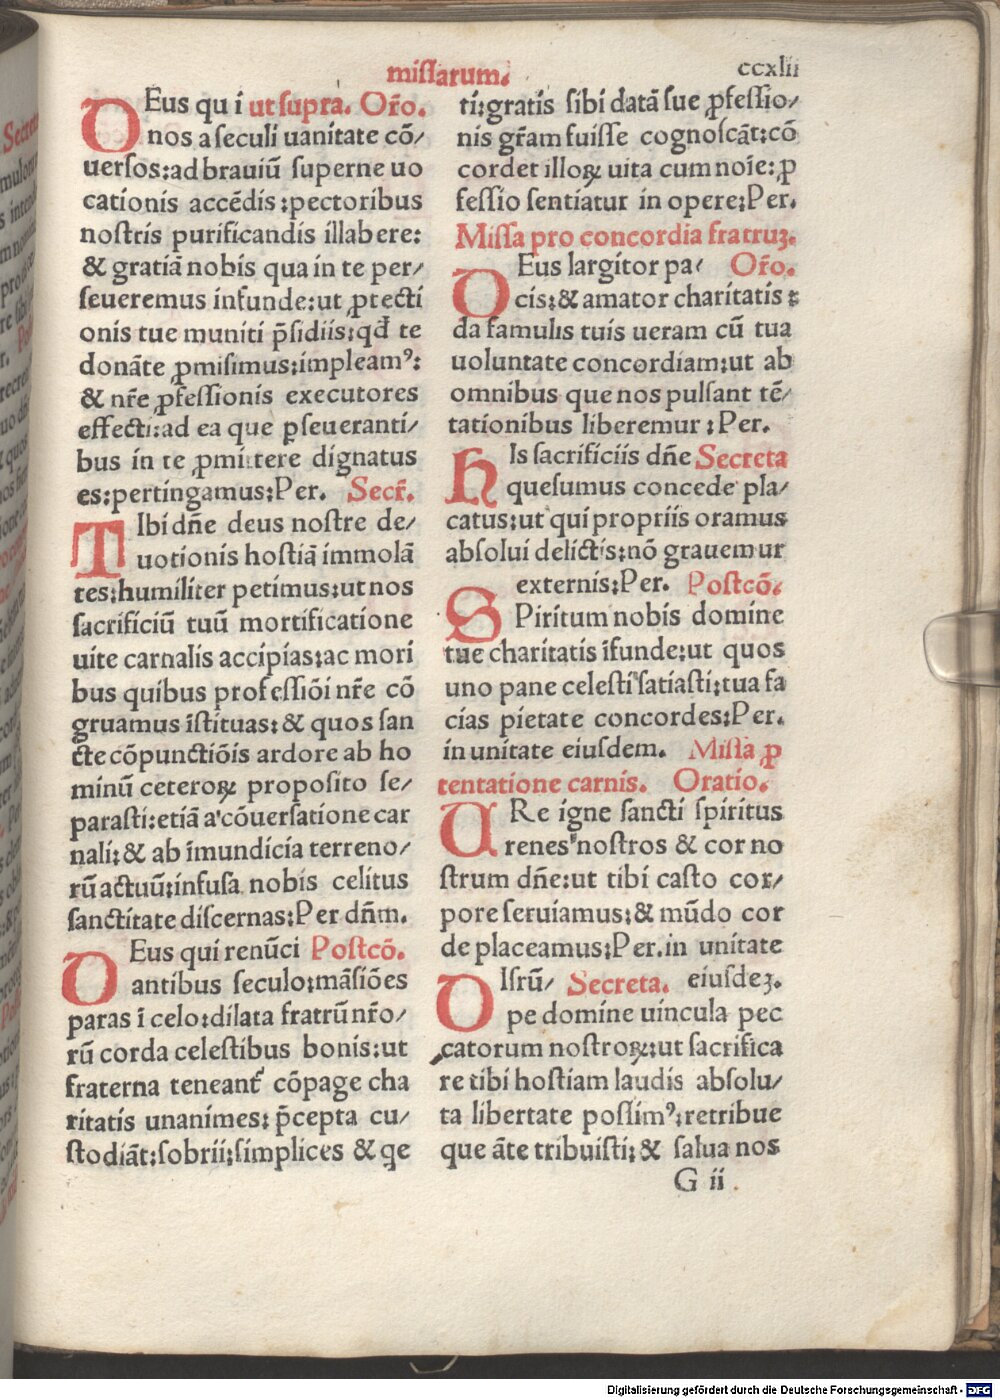 missarum.
ccxlii
DEus qu i ut supra. Or̃o.
nos a seculi uanitate cō/
uersos:ad brauiū superne uo
cationis accēdis:pectoribus
nostris purificandis illabere:
& gratiā nobis qua in te per/
seueremus infunde:ut ꝓtecti
onis tue muniti p̄sidiis:qđ te
donāte ꝓmisimus:impleamꝰ:
& nr̄e ꝓfessionis executores
effecti:ad ea que ꝑseueranti/
bus in te ꝓmittere dignatus
es:pertingamus:Per. Secr̄.
TIbi dn̄e deus nostre de/
uotionis hostiā immolā
tes:humiliter petimus:ut nos
sacrificiū tuū mortificatione
uite carnalis accipias:ac mori
bus quibus professiōi nr̄e cō
gruamus īstituas:& quos san
cte cōpunctiōis ardore ab ho
minū ceteroꝝ proposito se/
parasti:etiā a cōuersatione car
nali:& ab īmundicia terreno/
rū actuū:infusa nobis celitus
sanctitate discernas:Per dn̄m.
DEus qui renūci Postcō.
antibus seculo:māsiōes
paras ī celo:dilata fratrū nr̄o/
rū corda celestibus bonis:ut
fraterna teneant᷑ cōpage cha
ritatis unanimes: p̄cepta cu/
stodiāt:sobrii:simplices & qe
ti:gratis sibi datā sue ꝓfessio/
nis gr̄am fuisse cognoscāt:cō
cordet illoꝝ uita cum noīe:ꝓ
fessio sentiatur in opere:Per.
Missa pro concordia fratruꝫ.
DEus largitor pa/ Or̃o.
cis:& amator charitatis:
da famulis tuis ueram cū tua
uoluntate concordiam:ut ab
omnibus que nos pulsant tē/
tationibus liberemur:Per.
HIs sacrificiis dn̄e Secreta
quesumus concede pla/
catus:ut qui propriis oramus
absolui delictis:nō grauemur
externis:Per. Postcō.
SPiritum nobis domine
tue charitatis īfunde:ut quos
uno pane celesti satiasti:tua fa
cias pietate concordes:Per.
in unitate eiusdem. Missa ꝓ
tentatione carnis. Oratio.
URe igne sancti spiritus
renes nostros & cor no
strum dn̄e:ut tibi casto cor/
pore seruiamus:& mūdo cor
de placeamus:Per.in unitate
DIsrū/ Secreta. eiusdeꝫ.
pe domine uincula pec
catorum nostroꝝ:ut sacrifica
re tibi hostiam laudis absolu/
ta libertate possimꝰ:retribue
que āte tribuisti:& salua nos
G ii .
Digitalisierung gefördert durch die Deutsche Forschungsgemeinschaft - DFG